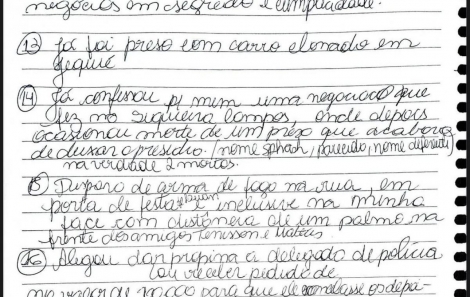 negócios em segredo e cumplicidade.
(13) Já foi preso com carro clonado em
Jequié
(14) Já confessou p/ mim uma negociação que
fez no Siqueira Campos, onde depois
ocasionou morte de um preso que acabava
de deixar o presídio. (nome splash, parecido, nome
na verdade 2 mortos.
(15) Disparo de arma de fogo na rua, em
porta de festa inclusive na minha
face com distância de um palmo na
frente dos amigos e
(16) Alegou dar propina a delegado de polícia
ou receber pedido de
no valor de para que ele